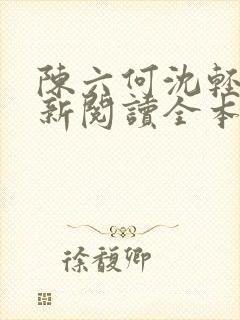 陳六何沈輕
新閱讀全本
徐馥卿